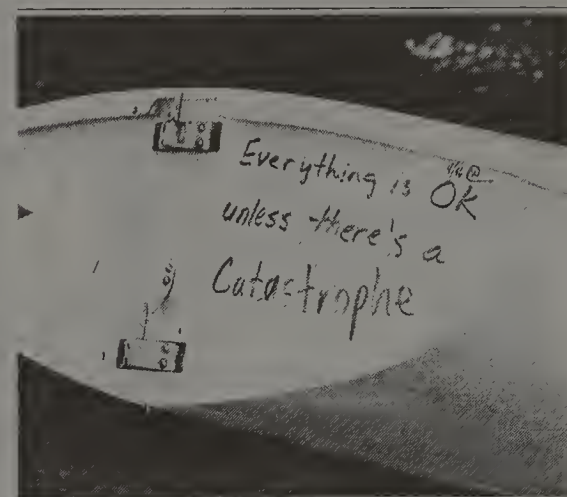 Everything is OK
unless there's a
Catastrophe